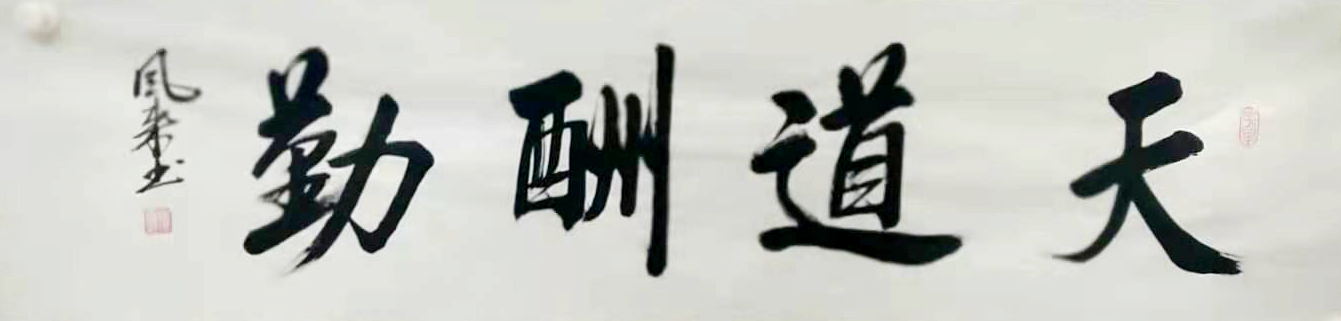 天道酬勤
风来书